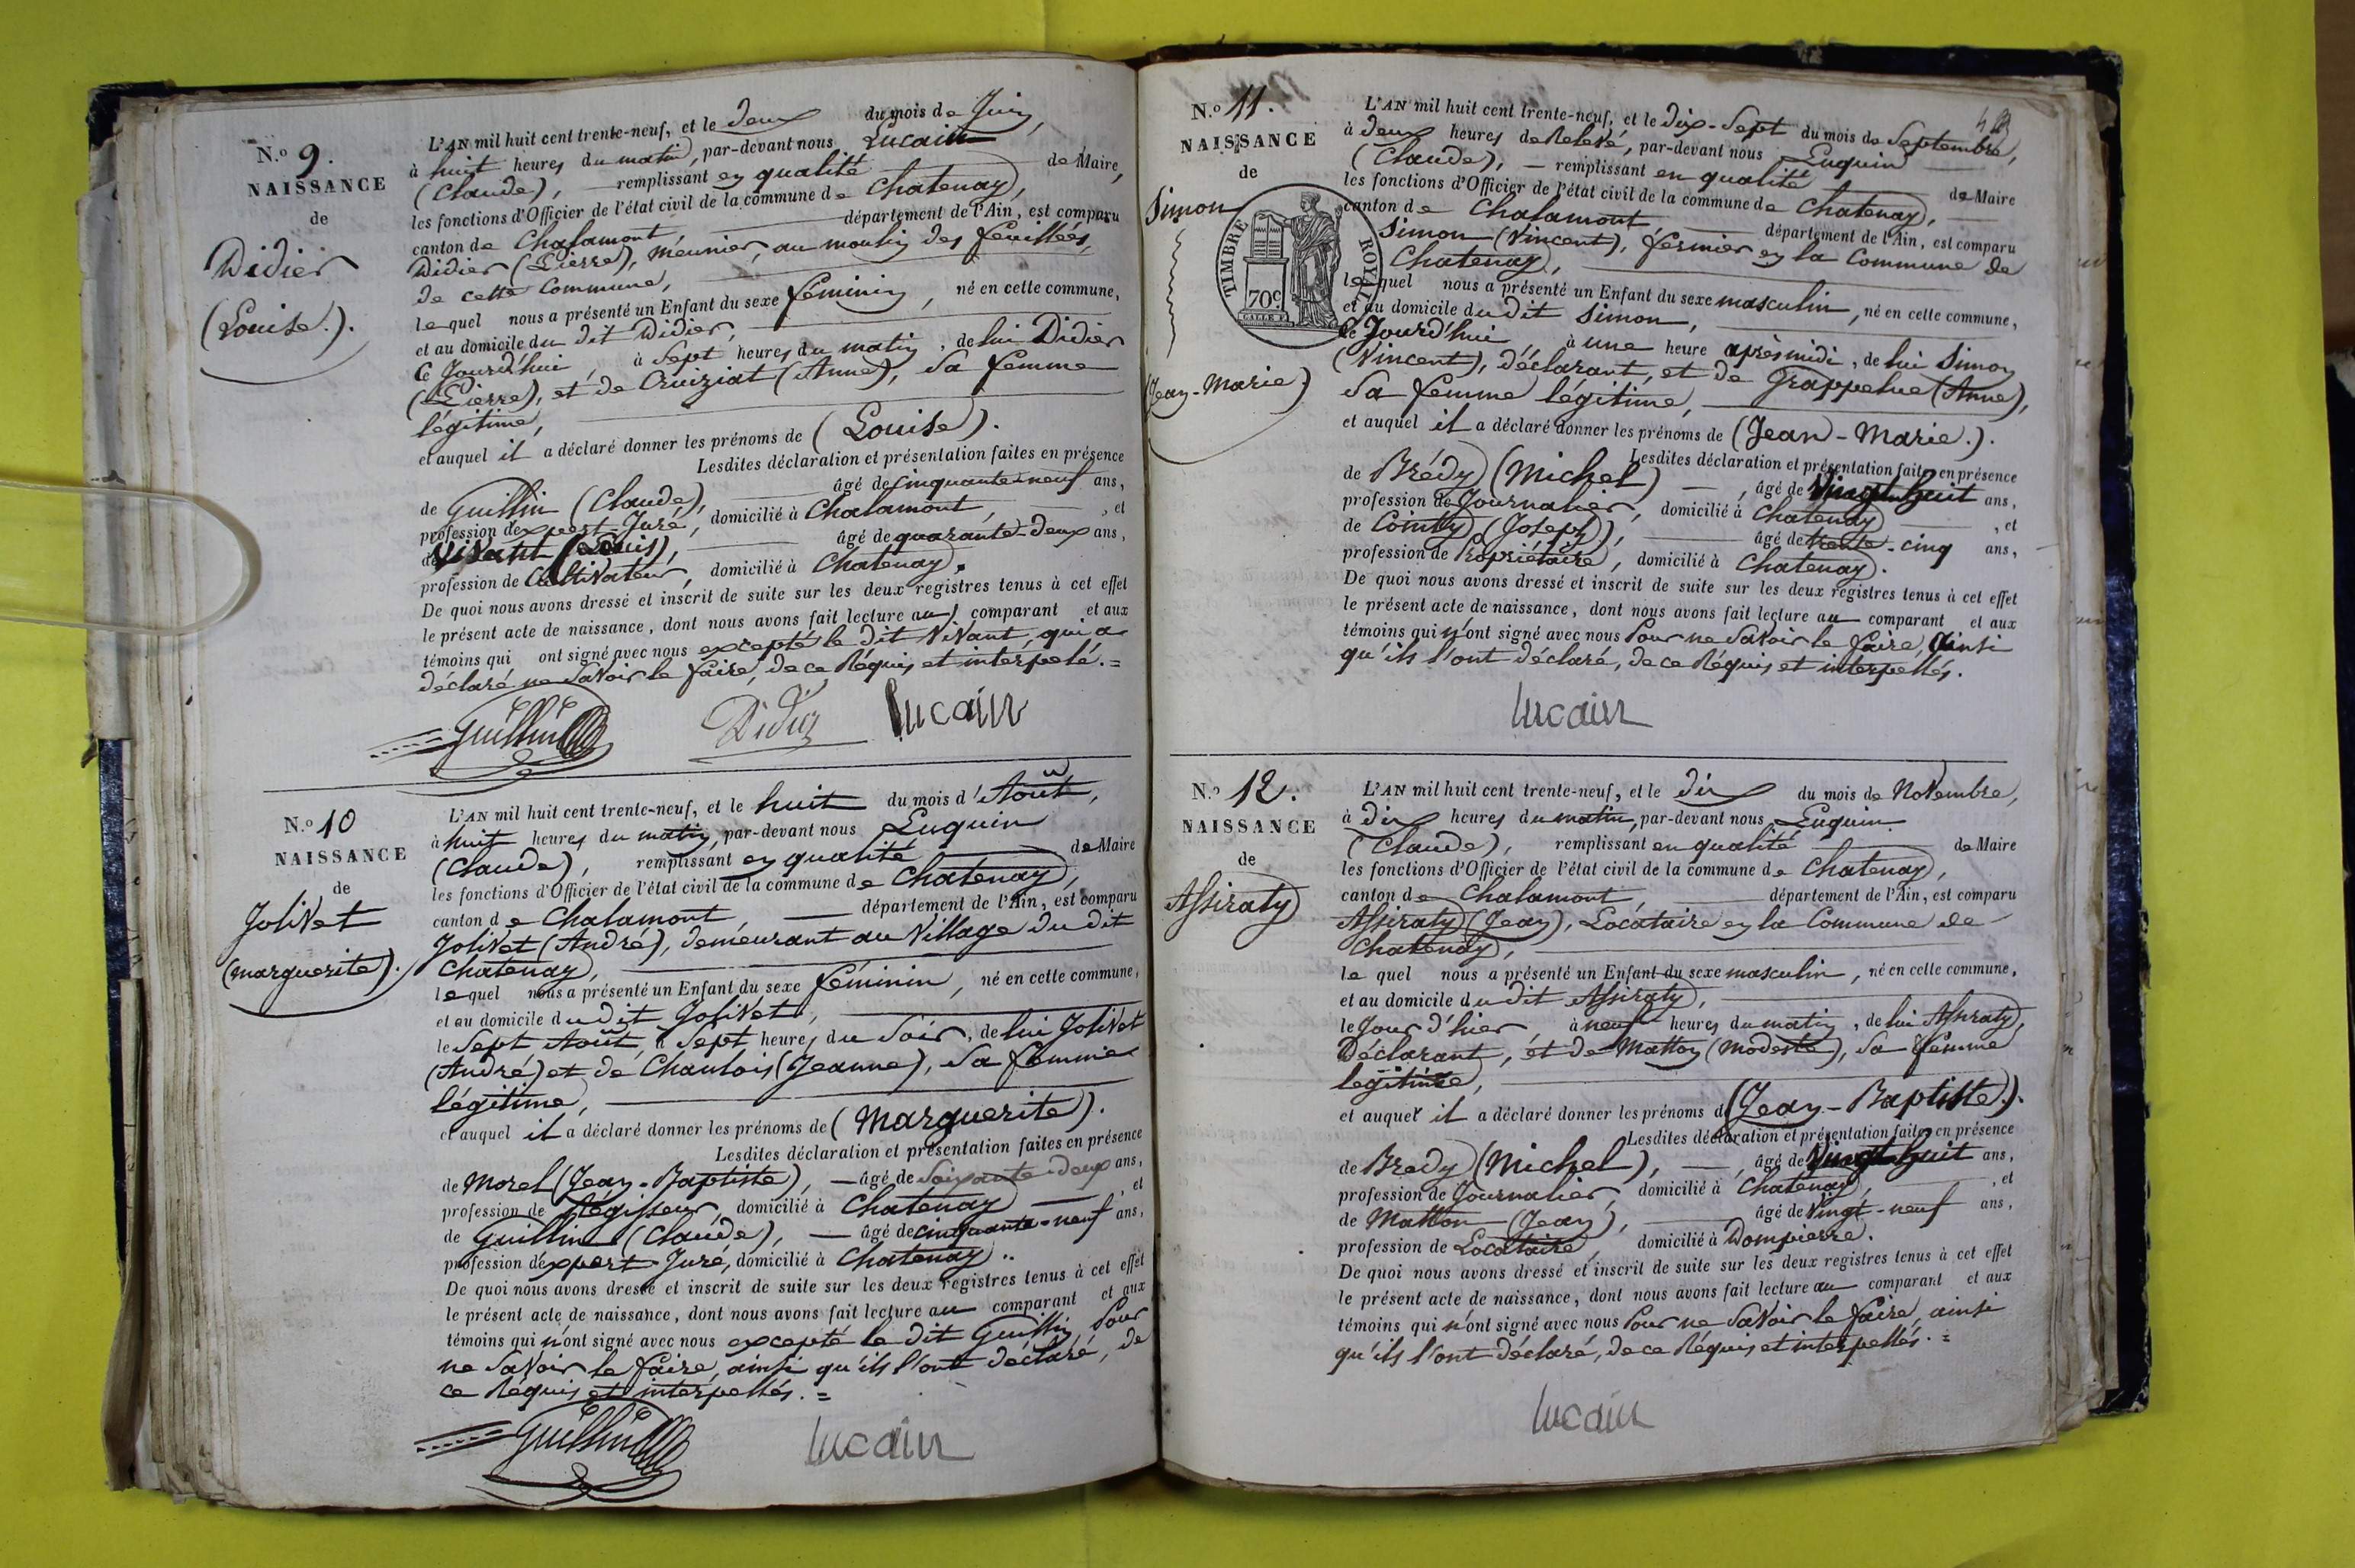 N.º 9.
NAISSANCE
de
Didier
(Louise.).
L'AN mil huit cent trente-neuf, et le deux du mois de Juin,
à huit heures du matin, par-devant nous Lucain
(Claude), remplissant en qualité de Maire,
les fonctions d'Officier de l'état civil de la commune de Chatenay,
canton de Chalamont, département de l'Ain, est comparu
Didier (Pierre), meunier, au moulin des feuillées,
de cette Commune,
lequel nous a présenté un Enfant du sexe féminin, né en cette commune,
et au domicile du dit Didier,
Ce Jourd'hui, à Sept heures du matin, de lui Didier
(Pierre), et de Cruiziat (Anne), Sa femme
légitime,
et auquel il a déclaré donner les prénoms de (Louise).
Lesdites déclaration et présentation faites en présence
de Guillin (Claude), âgé de cinquante-neuf ans,
profession d'expert-Juré, domicilié à Chalamont, et
de Vivant (Louis), âgé de quarante-deux ans,
profession de Cultivateur, domicilié à Chatenay.
De quoi nous avons dressé et inscrit de suite sur les deux registres tenus à cet effet
le présent acte de naissance, dont nous avons fait lecture au comparant et aux
témoins qui ont signé avec nous excepté le dit Vivant, qui a
déclaré ne Savoir le faire, de ce Réquis et interpelé.=
Guillin Didier Lucain
N.º 10
NAISSANCE
de
Jolivet
(marguerite).
L'AN mil huit cent trente-neuf, et le huit du mois d'Août,
à huit heures du matin, par-devant nous Luquin
(Claude), remplissant en qualité de Maire
les fonctions d'Officier de l'état civil de la commune de Chatenay,
canton de Chalamont, département de l'Ain, est comparu
Jolivet (André), demeurant au Village du dit
Chatenay,
lequel nous a présenté un Enfant du sexe féminin, né en cette commune,
et au domicile du dit Jolivet,
le Sept Août, à Sept heures du Soir, de lui Jolivet
(André) et de Chanlois (Jeanne), Sa femme
légitime,
et auquel il a déclaré donner les prénoms de (Marguerite).
Lesdites déclaration et présentation faites en présence
de Morel (Jean-Baptiste), âgé de Soixante-deux ans,
profession de Régisseur, domicilié à Chatenay, et
de Guillin (Claude), âgé de cinquante-neuf ans,
profession d'expert-Juré, domicilié à Chatenay..
De quoi nous avons dressé et inscrit de suite sur les deux registres tenus à cet effet
le présent acte de naissance, dont nous avons fait lecture au comparant et aux
témoins qui n'ont signé avec nous excepté le dit Guillin, Pour
ne Savoir le faire, ainsi qu'ils l'ont déclaré, de
ce Réquis et interpellés.=
Guillin Lucain
N.º 11.
NAISSANCE
de
Simon
(Jean-Marie)
TIMBRE ROYAL
70c
L'AN mil huit cent trente-neuf, et le dix-Sept du mois de Septembre,
à deux heures de Relevé, par-devant nous Luquin
(Claude), remplissant en qualité de Maire
les fonctions d'Officier de l'état civil de la commune de Chatenay,
canton de Chalamont, département de l'Ain, est comparu
Simon (Vincent), fermier en la Commune de
Chatenay,
lequel nous a présenté un Enfant du sexe masculin, né en cette commune,
et au domicile du dit Simon,
ce Jourd'hui, à une heure après midi, de lui Simon
(Vincent), déclarant, et de Grappelue (Anne),
Sa femme légitime,
et auquel il a déclaré donner les prénoms de (Jean-Marie.).
Lesdites déclaration et présentation faites en présence
de Brédy (Michel), âgé de Vingt huit ans,
profession de Journalier, domicilié à Chatenay, et
de Cointy (Joseph), âgé de trente-cinq ans,
profession de Propriétaire, domicilié à Chatenay.
De quoi nous avons dressé et inscrit de suite sur les deux registres tenus à cet effet
le présent acte de naissance, dont nous avons fait lecture au comparant et aux
témoins qui n'ont signé avec nous Pour ne Savoir le faire, Ainsi
qu'ils l'ont déclaré, de ce Réquis et interpellés.
Lucain
N.º 12.
NAISSANCE
de
Assiraty
L'AN mil huit cent trente-neuf, et le dix du mois de Novembre,
à dix heures du matin, par-devant nous Luquin
(Claude), remplissant en qualité de Maire
les fonctions d'Officier de l'état civil de la commune de Chatenay,
canton de Chalamont, département de l'Ain, est comparu
Assiraty (Jean), Locataire en la Commune de
Chatenay,
lequel nous a présenté un Enfant du sexe masculin, né en cette commune,
et au domicile du dit Assiraty,
le Jour d'hier, à neuf heures du matin, de lui Assiraty,
Déclarant, et de Matton (Modeste), Sa femme
légitime,
et auquel il a déclaré donner les prénoms de (Jean-Baptiste.).
Lesdites déclaration et présentation faites en présence
de Brédy (Michel), âgé de Vingt huit ans,
profession de Journalier, domicilié à Chatenay, et
de Matton (Jean), âgé de Vingt-neuf ans,
profession de Locataire, domicilié à Dompierre.
De quoi nous avons dressé et inscrit de suite sur les deux registres tenus à cet effet
le présent acte de naissance, dont nous avons fait lecture au comparant et aux
témoins qui n'ont signé avec nous Pour ne Savoir le faire, ainsi
qu'ils l'ont déclaré, de ce Réquis et interpellés.=
Lucain